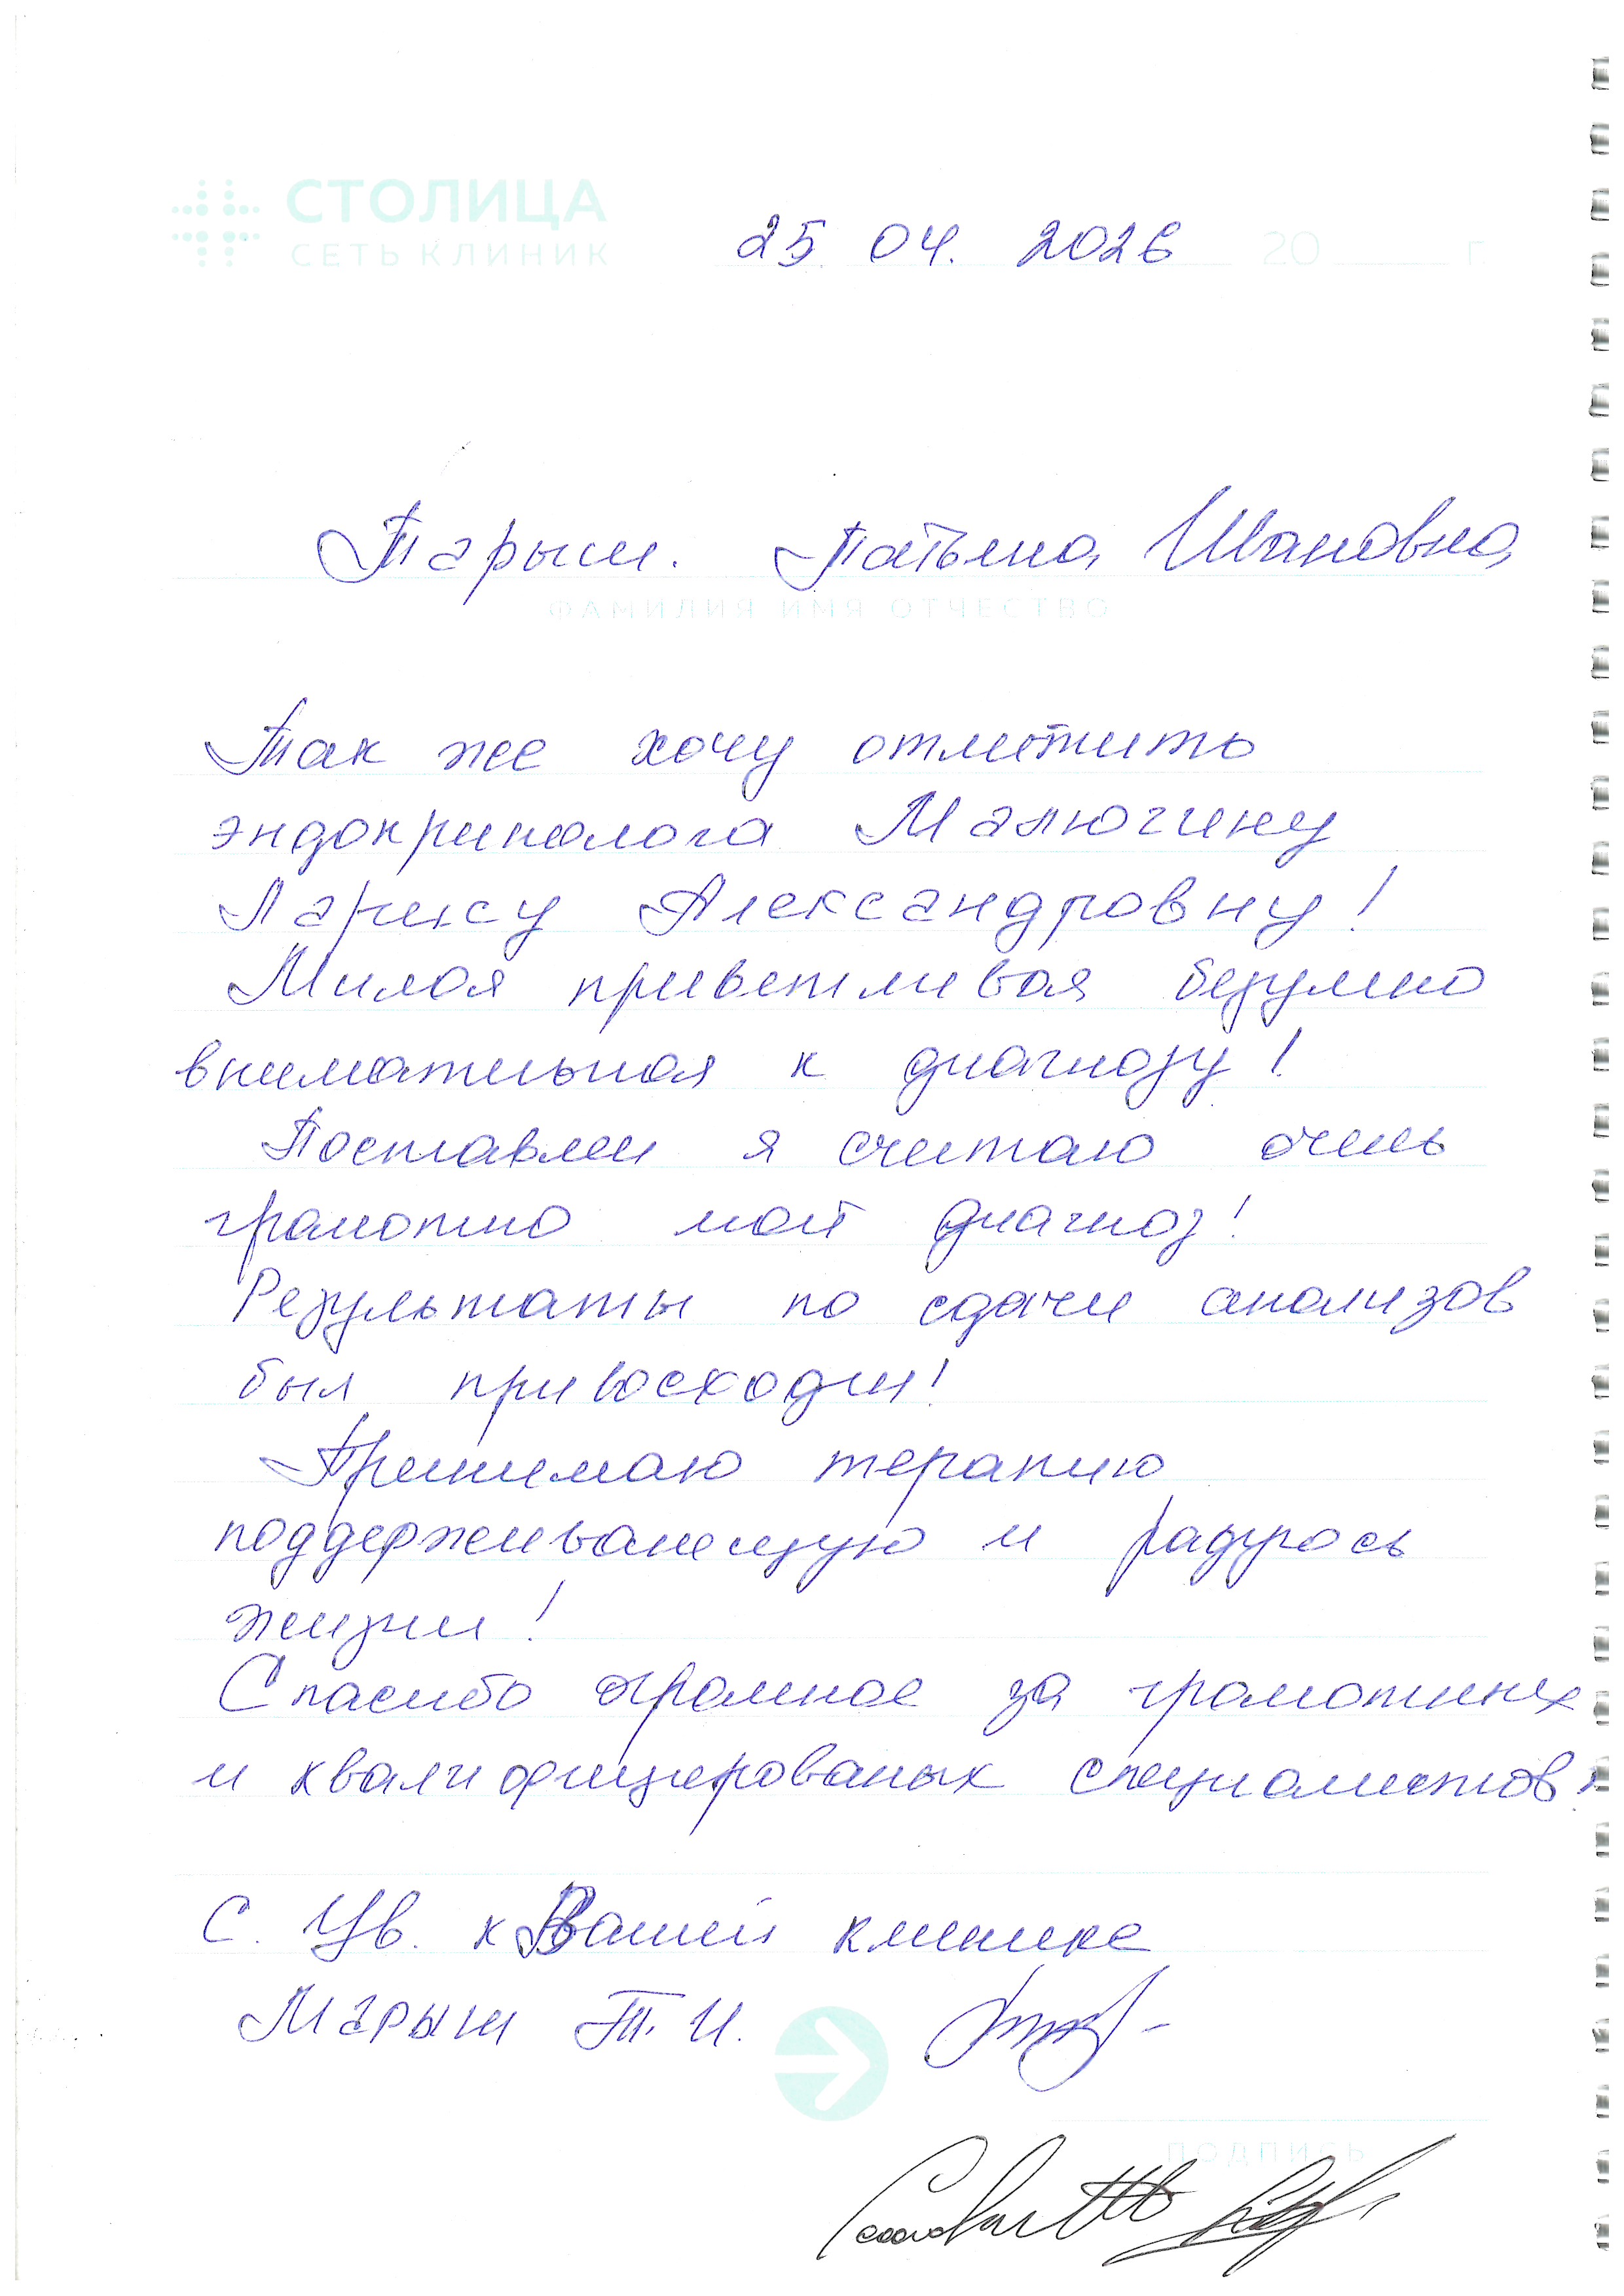 СТОЛИЦА
СЕТЬ КЛИНИК
25. 04. 2026 20 г.
Татьяна Ивановна
ФАМИЛИЯ ИМЯ ОТЧЕСТВО
Так же хочу отметить
эндокринолога Малюгину
Ларису Александровну!
Милая приветливая безумно
внимательная к диагнозу!
Поставлен я считаю очень
грамотно мой диагноз!
Результаты по сдачи анализов
был привосходен!
Принимаю терапию
и радуюсь
жизни!
Спасибо огромное за грамотных
и квалифицированых специалистов!
С. Ув. к Вашей клинике
Т. И.
ПОДПИСЬ